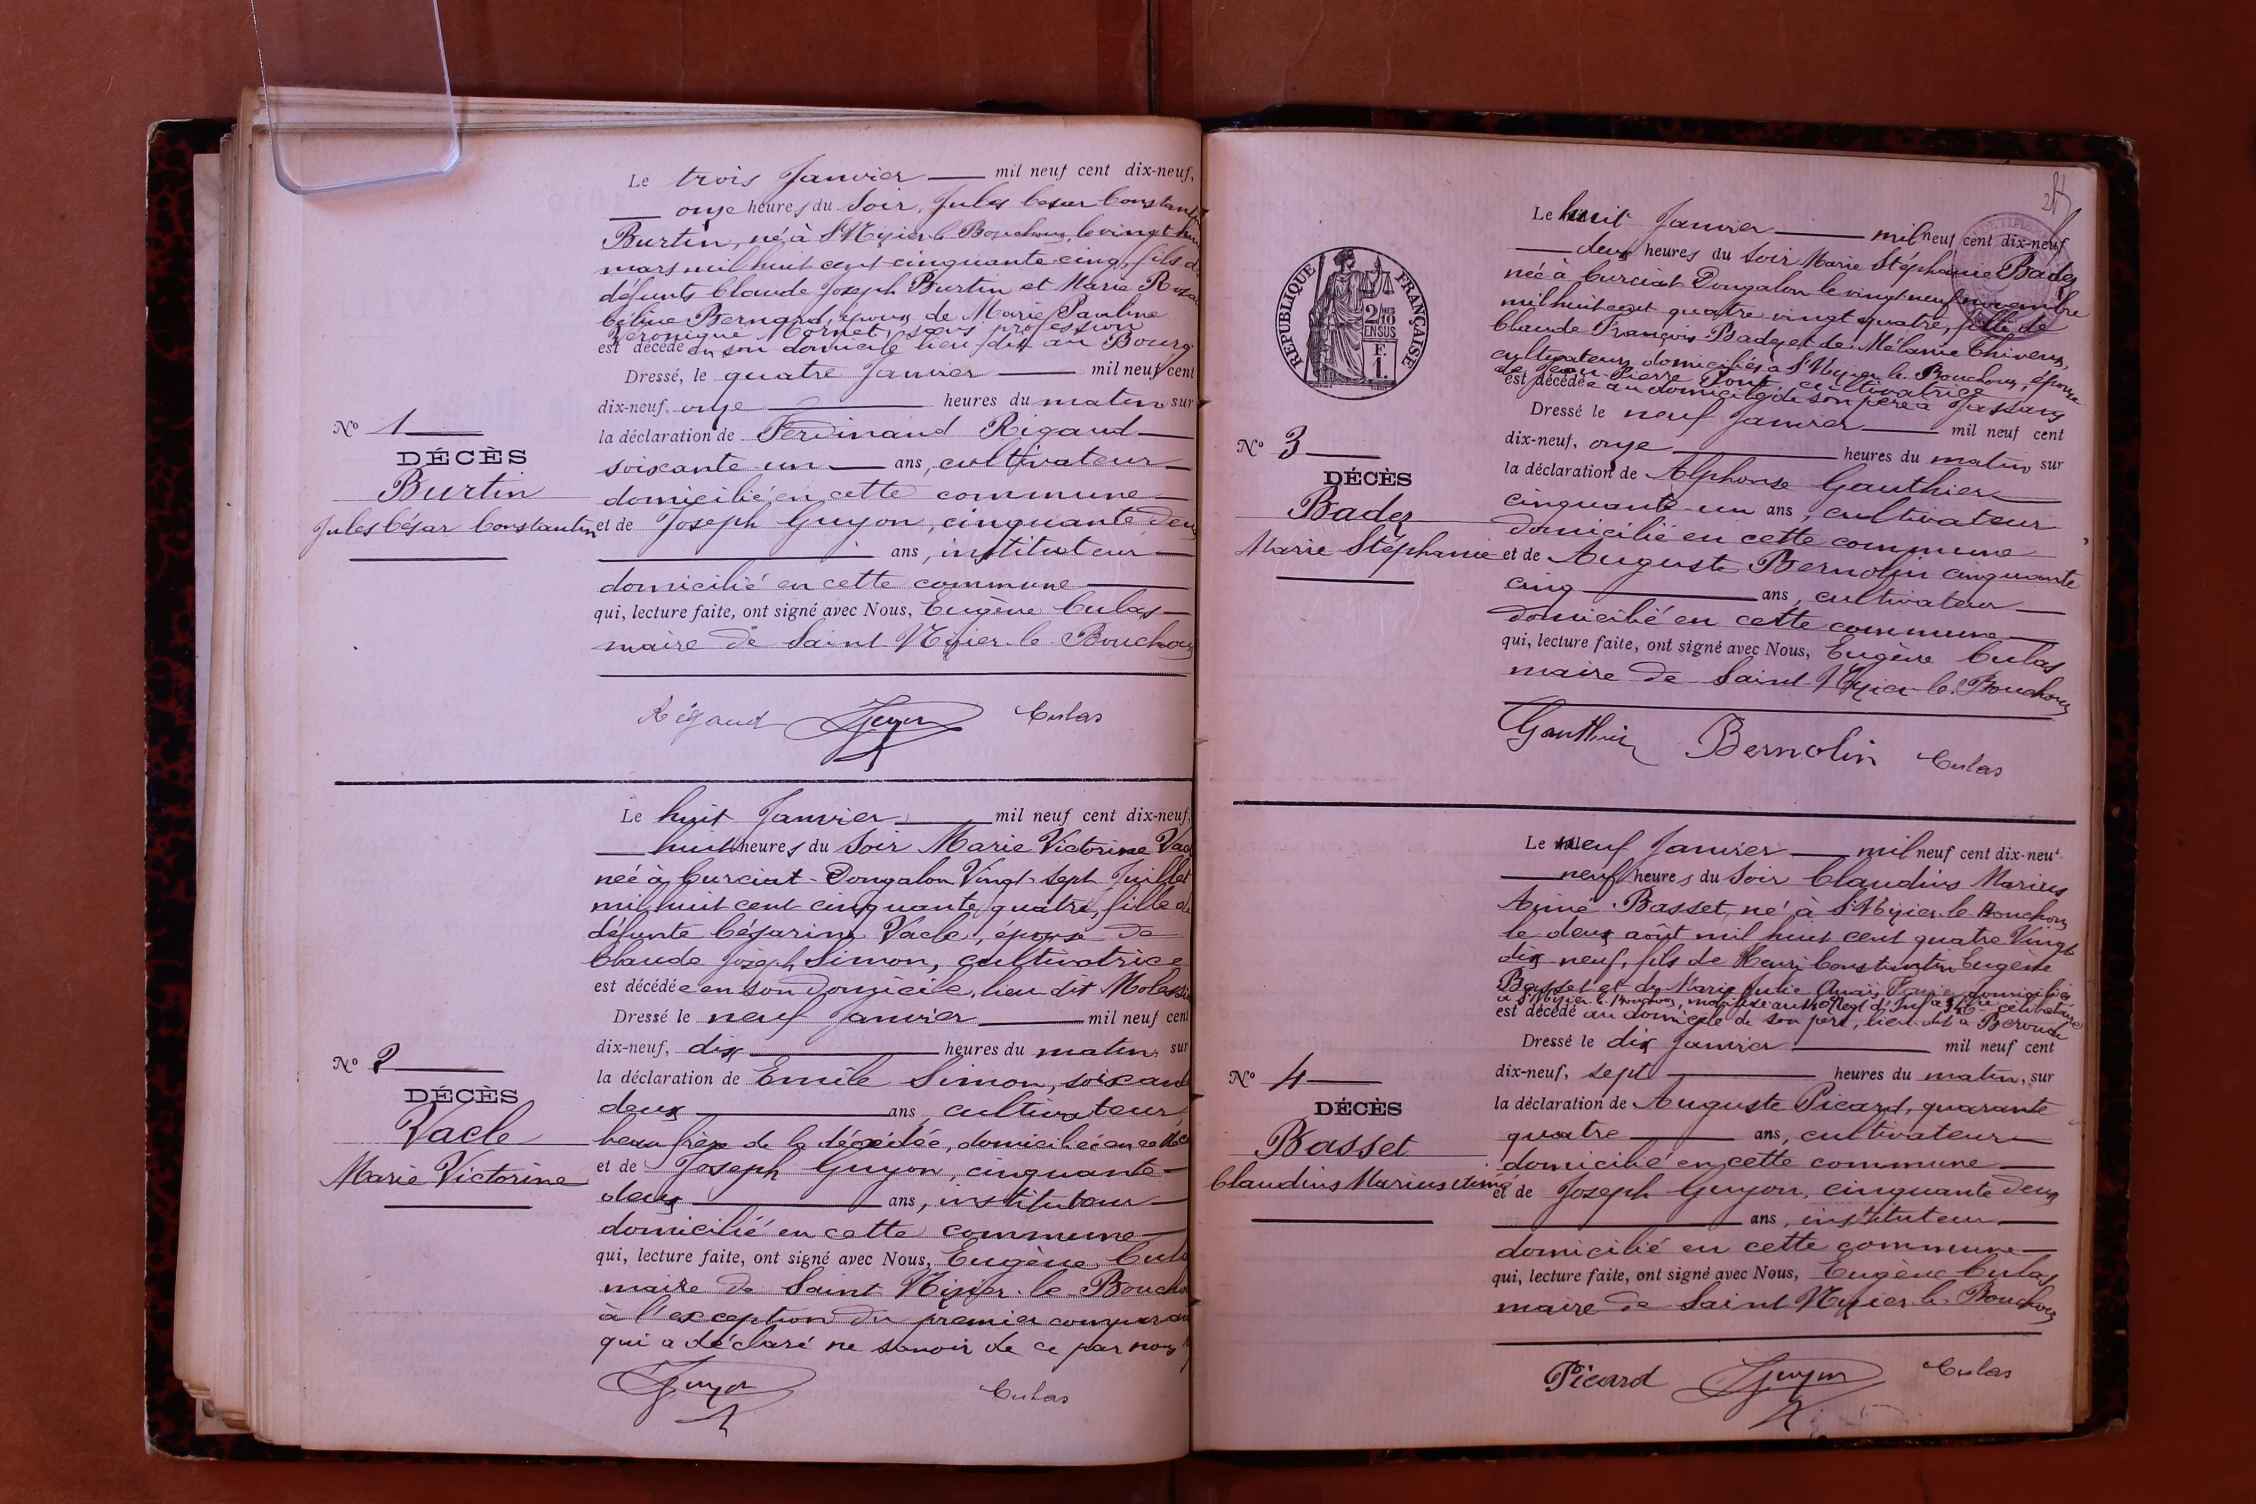 Le trois Janvier mil neuf cent dix-neuf,
onze heures du soir, Jules César Constantin
Burtin, né à St Nizier-le-Bouchoux, le vingt huit
mars mil huit cent cinquante-cinq, fils de
défunts Claude Joseph Burtin et Marie Rosa
Céline Bernard, époux de Marie Pauline
Véronique Cornet, sans profession
est décédé en son domicile lieu dit au Bourg
Dressé, le quatre Janvier mil neuf cent
dix-neuf, onze heures du matin sur
la déclaration de Ferdinand Rigaud
soixante-un ans, cultivateur
domicilié en cette commune
et de Joseph Guyon, cinquante deux
ans, instituteur
domicilié en cette commune
qui, lecture faite, ont signé avec Nous, Eugène Culas
maire de Saint Nizier-le-Bouchoux
Rigaud Guyon Culas
No 1
DÉCÈS
Burtin
Jules César Constantin
Le huit Janvier mil neuf cent dix-neuf,
huit heures du soir Marie Victorine Vacle
née à Curciat-Dongalon Vingt-sept Juillet
mil huit cent cinquante quatre, fille de
défunte Césarine Vacle, épouse de
Claude Joseph Simon, cultivatrice
est décédée en son domicile, lieu dit
Dressé le neuf Janvier mil neuf cent
dix-neuf, dix heures du matin, sur
la déclaration de Emile Simon, soixante
deux ans, cultivateur
beau frère de la décédée, domicilié en
et de Joseph Guyon, cinquante-
deux ans, instituteur
domicilié en cette commune
qui, lecture faite, ont signé avec Nous, Eugène Culas
maire de Saint Nizier-le-Bouchoux
à l'exception du premier comparant
qui a déclaré ne savoir de ce par nous
Guyon Culas
No 2
DÉCÈS
Vacle
Marie Victorine
RÉPUBLIQUE FRANÇAISE
2/10 EN SUS
F. 1.
Le huit Janvier mil neuf cent dix-neuf
deux heures du soir Marie Stéphanie Badez
née à Curciat Dongalon le vingt neuf novembre
mil huit cent quatre vingt quatre, fille de
Claude François Badez et de Mélanie Thivent,
cultivateurs domiciliés à St Nizier-le-Bouchoux, épouse
de Jean-Pierre Pont, cultivatrice
est décédée au domicile de son père à Tassary
Dressé le neuf Janvier mil neuf cent
dix-neuf, onze heures du matin sur
la déclaration de Alphonse Gauthier
cinquante-un ans, cultivateur
domicilié en cette commune
et de Auguste Bernolin cinquante
cinq ans, cultivateur
domicilié en cette commune
qui, lecture faite, ont signé avec Nous, Eugène Culas
maire de Saint Nizier-le-Bouchoux
Gauthier Bernolin Culas
No 3
DÉCÈS
Badez
Marie Stéphanie
Le neuf Janvier mil neuf cent dix-neuf
neuf heures du soir Claudius Marius
Aimé Basset, né à St Nizier-le-Bouchoux
le deux août mil huit cent quatre Vingt
dix-neuf, fils de Henri Constantin Eugène
Basset et de Marie Julie Anaïs domiciliés
à St Nizier-le-Bouchoux, célibataire
est décédé au domicile de son père, lieu dit à
Dressé le dix Janvier mil neuf cent
dix-neuf, sept heures du matin, sur
la déclaration de Auguste Picard, quarante
quatre ans, cultivateur
domicilié en cette commune
et de Joseph Guyon, cinquante deux
ans, instituteur
domicilié en cette commune
qui, lecture faite, ont signé avec Nous, Eugène Culas
maire de Saint Nizier-le-Bouchoux
Picard Guyon Culas
No 4
DÉCÈS
Basset
Claudius Marius Aimé